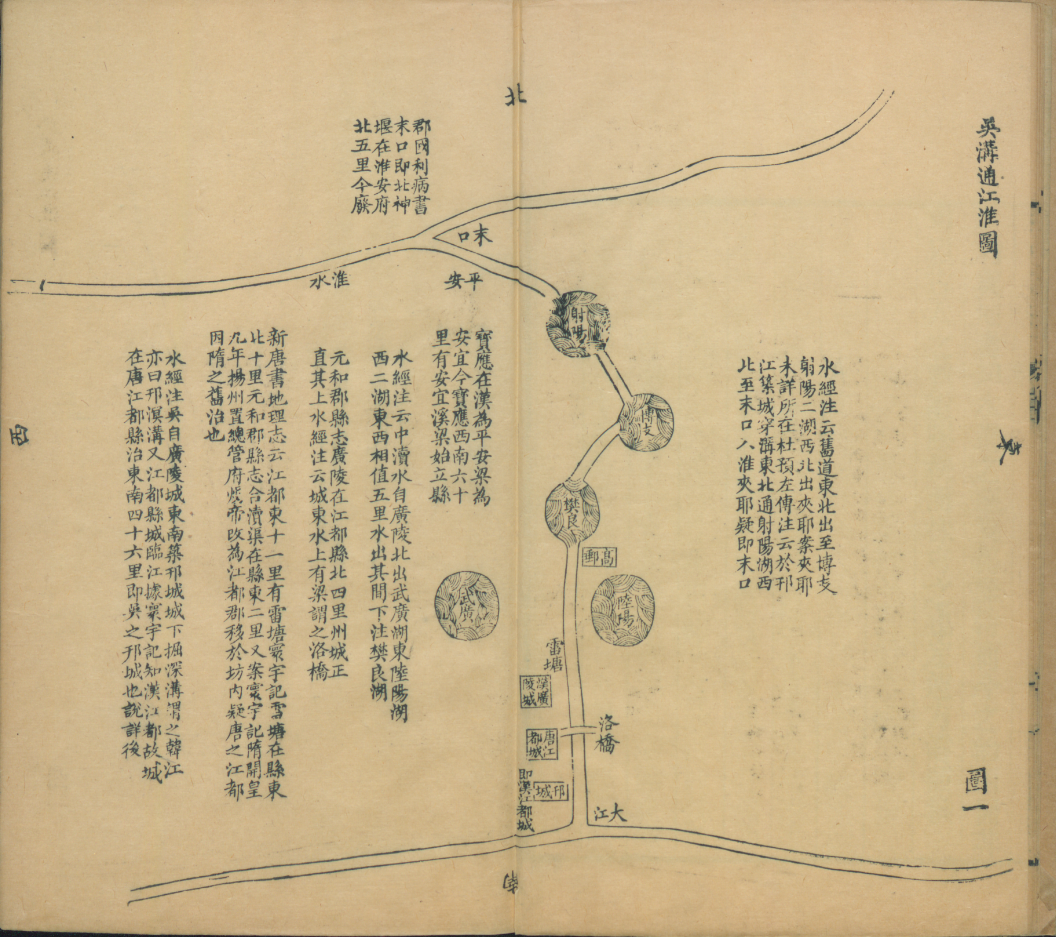 吳溝通江淮圖
圖一
北
東
南
西
水經注云舊道東北出至博支
射陽二湖西北出夾耶案夾耶
未詳所在杜預左傳注云於邗
江築城穿溝東北通射陽湖西
北至末口入淮夾耶疑即末口
末口
射陽
博支
樊良
高郵
陸陽
武廣
雷塘
漢廣
陵城
洛橋
唐江
都城
邗城
即漢江都城
大江
平安
淮水
郡國利病書
末口即北神
堰在淮安府
北五里今廢
寶應在漢為平安梁為
安宜今寶應西南六十
里有安宜溪梁始立縣
水經注云中瀆水自廣陵北出武廣湖東陸陽湖
西二湖東西相值五里水出其間下注樊良湖
元和郡縣志廣陵在江都縣北四里州城正
直其上水經注云城東水上有梁謂之洛橋
新唐書地理志云江都東十一里有雷塘寰宇記雷塘在縣東
北十里元和郡縣志合瀆渠在縣東二里又案寰宇記隋開皇
九年揚州置總管府煬帝改為江都郡移於坊內疑唐之江都
因隋之舊治也
水經注吳自廣陵城東南築邗城城下掘深溝謂之韓江
亦曰邗溟溝又江都縣城臨江據寰宇記知漢江都故城
在唐江都縣治東南四十六里即吳之邗城也說詳後